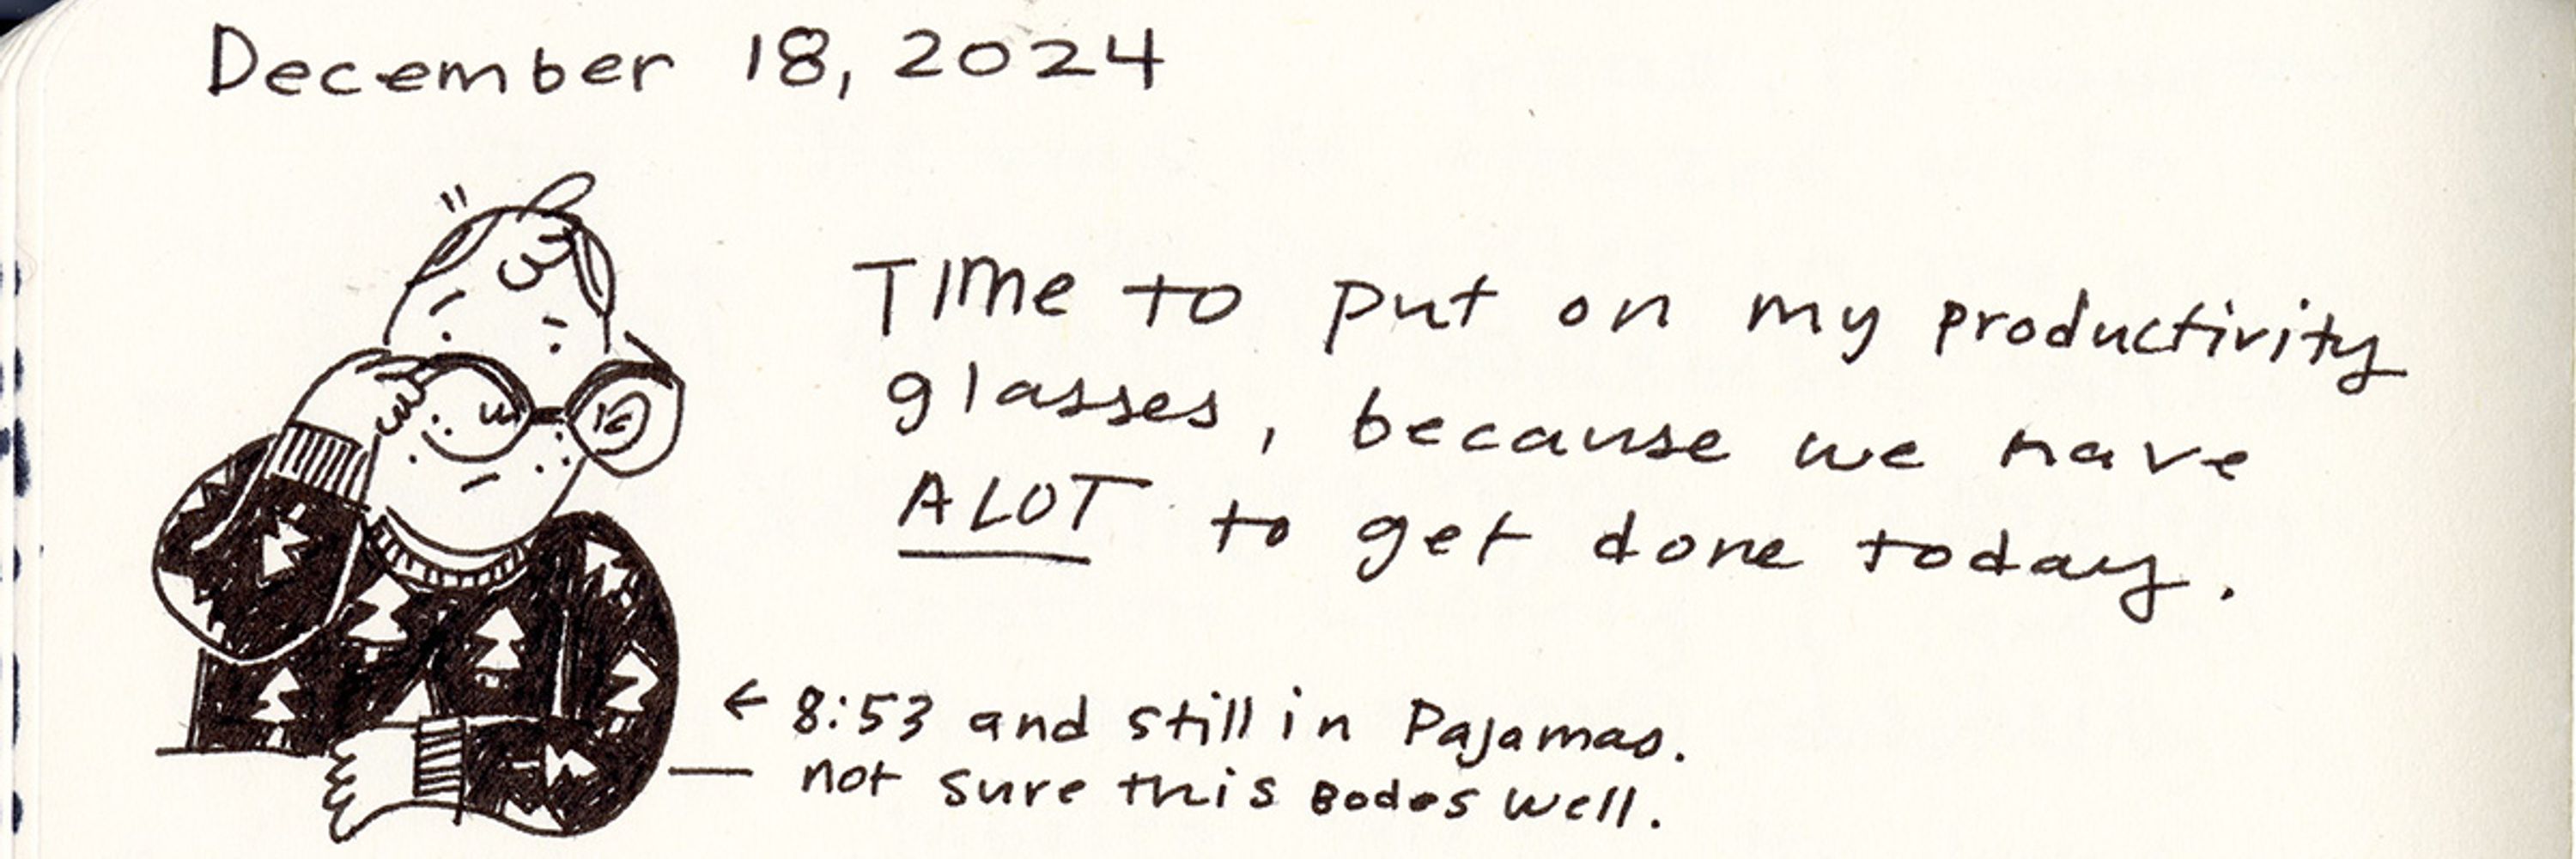 December 18, 2024
TIME to put on my productivity
glasses, because we have
ALOT to get done today.
← 8:53 and still in Pajamas.
not sure this Bodes well.